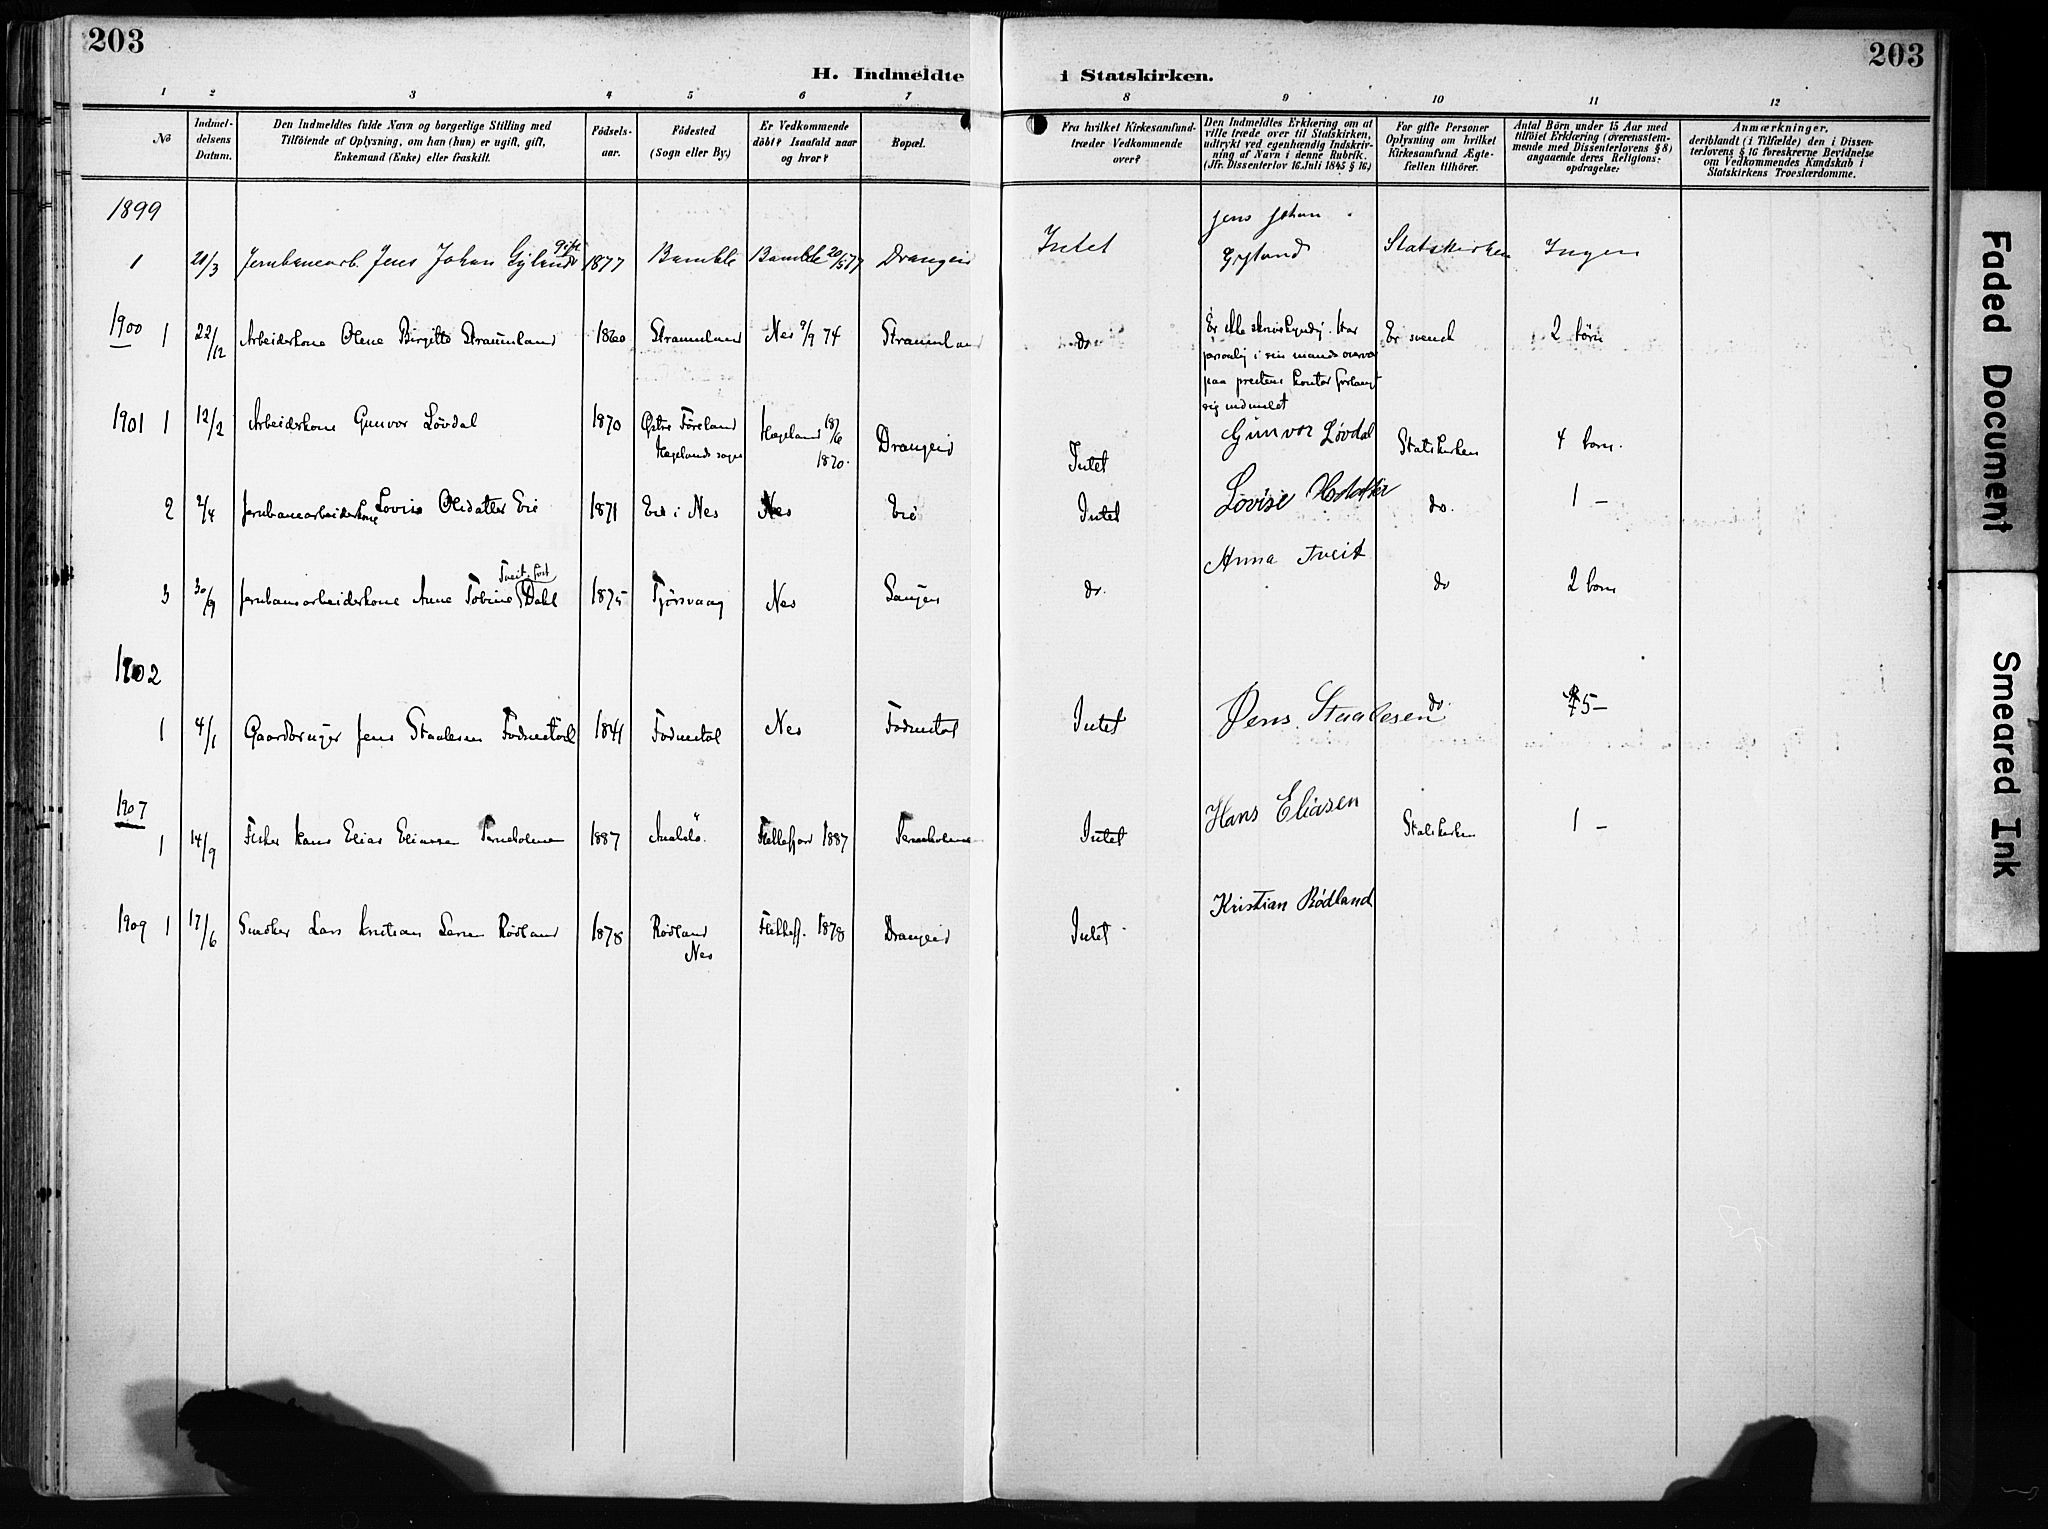 203
203
H. Indmeldte i Statskirken.
1 2 3 4 5 6 7 8 9 10 11 12
No
Indmel-
delsens
Datum.
Den Indmeldtes fulde Navn og borgerlige Stilling med
Tilföiende af Oplysning, om han (hun) er ugift, gift,
Enkemand (Enke) eller fraskilt.
Födsels-
aar.
Födested
(Sogn eller By.)
Er Vedkommende
döbt? Isaafald naar
og hvor?
Bopæl.
Fra hvilket Kirkesamfund
træder Vedkommende
over?
Den Indmeldtes Erklæring om at
ville træde over til Statskirken,
udtrykt ved egenhændig Indskriv-
ning af Navn i denne Rubrik.
(Jfr. Dissenterlov 16. Juli 1845 § 16.)
For gifte Personer
Oplysning om hvilket
Kirkesamfund Ægte-
fællen tilhörer.
Antal Börn under 15 Aar med
tilföiet Erklæring (overensstem-
mende med Dissenterlovens § 8)
angaaende deres Religions-
opdragelse.
Anmærkninger,
deriblandt (i Tilfælde) den i Dissen-
terlovens § 16 foreskrevne Bevidnelse
om Vedkommendes Kundskab i
Statskirkens Troeslærdomme.
1899
1 21/3 Jernbanearb. Jens Johan Gyland gift 1877 Bamble Bamble 20/5 77 Drangeid Intet Jens Johan Gyland Statskirken Ingen
1900 1 22/12 Arbeiderkone Olene Birgitte Straumland 1860 Straumland Nes 9/9 74 Straumland do Er ikke skrivekyndig. Har
personlig i sin mands overvær
paa prestens kontor forlangt
sig indmeldt
Er svensk 2 börn
1901 1 12/2 Arbeiderkone Gunvor Lövdal 1870 Östre Föreland
Hægelands sogn
Hægeland 18/6
1870.
Drangeid Intet Gunvor Lövdal Statskirken 4 born.
2 2/4 Jernbanearbeiderkone Lovise Olsdatter Eie 1871 Eie i Nes Nes Eie Intet Lovise do. 1 –
3 30/9 Jernbanearbeiderkone Anne Tobine Tveit, født Dahl 1875 Fjörsvaag Nes do. Anna Tveit do 2 born
1902
1 4/1 Gaardbruger Jens Staalesen Fodnestöl 1841 Fodnestöl Nes Fodnestöl Intet Jens Staalesen do. 5 –
1907
1 14/9 Fisker Hans Elias Eliassen 1887 Flekkefjord 1887 Intet Hans Eliasen Statskirken 1 –
1909 1 17/6 Snedker Lars Kristian Larsen Rödland 1878 Rödland
Nes
Flekkefj. 1878 Drangeid Intet Kristian Rödland
Faded Document
Smeared Ink